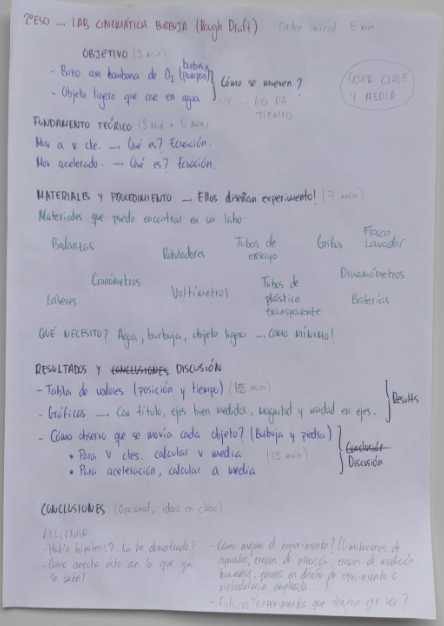 2ºESO → LAB CINEMÁTICA BURBUJA (Rough Draft) Orden inicial 5 min
OBJETIVO (5 min)
- Buzo con bombona de O2 (burbuja)
- Objeto ligero que cae en agua
¿Cómo se mueven?
X → NO DA TIEMPO
CEDER CLASE Y MEDIA
FUNDAMENTO TEÓRICO (5 min + 5 min)
Mov a v cte. → Qué es? Ecuación.
Mov acelerado. → Qué es? Ecuación.
MATERIALES Y PROCEDIMIENTO → Ellos diseñan experimento! (7 min)
Materiales que puedo encontrar en un labo:
Balanzas Rotuladores Tubos de ensayo Grifos Frasco Lavador
Láseres Cronómetros Voltímetros Tubos de plástico transparente Dinamómetros Baterías
QUÉ NECESITO? Agua, burbuja, objeto ligero → COMO MÍNIMO!
RESULTADOS Y CONCLUSIONES DISCUSIÓN
- Tabla de valores (posición y tiempo) (15 min)
- Gráficos → Con título, ejes bien medidos, magnitud y unidad en ejes.
Results
- Cómo observo que se movía cada objeto? (Burbuja y piedra)
* Para v ctes. calcular v media (15 min)
* Para aceleración, calcular a media
Conclusión
Discusión
CONCLUSIONES (Opcional, ideas en clase)
- Había hipótesis? La he demostrado?
- Cómo conecta ésto con lo que ya se sabía?
- Cómo mejoro el experimento? (Limitaciones de aparatos, errores de precisión, errores de medición humanos, errores en diseño de experimento o metodología empleada...
- Futuros experimentos que tengan que ver?